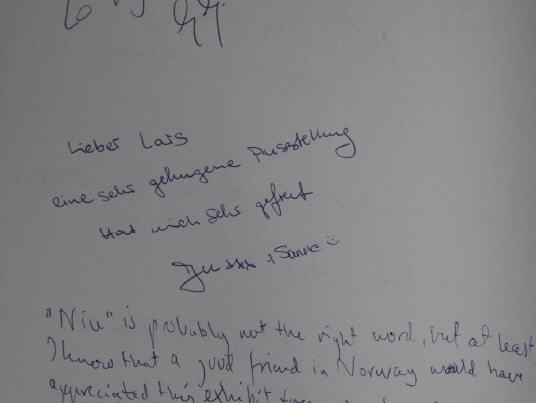 Lieber Lars
eine sehr gelungene Ausstellung
Hat mich sehr gefreut
+ Sanne
"Nice" is probably not the right word, but at least
I know that a good friend in Norway would have
appreciated this exhibit